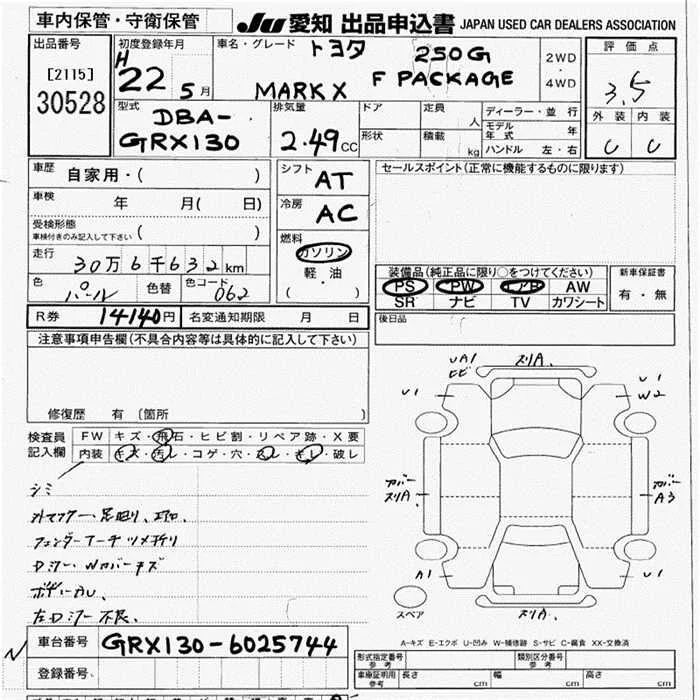 車内保管・守衛保管
JU 愛知 出品申込書 JAPAN USED CAR DEALERS ASSOCIATION
出品番号 初度登録年月 車名・グレード トヨタ 250G 2WD ・ 4WD 評価点
[2115] H 22 5月 MARK X F PACKAGE 3.5
30528 型式 DBA-GRX130 排気量 2.49cc ドア 定員 人 ディーラー・並行 外装 内装
形状 積載 kg モデル年式 年 C C
ハンドル 左・右
車歴 自家用・( ) シフト AT セールスポイント(正常に機能するものに限ります)
車検 年 月( 日) 冷房 AC
受検形態 ( )
車検付きのみ記入して下さい
燃料 ガソリン 軽・油 ( )
走行 30万6千632km
装備品(純正品に限り○をつけてください) 新車保証書
色 パール 色替 色コード 062 PS PW エアB AW 有・無
SR ナビ TV カワシート
R券 14140円 名変通知期限 月 日 後日品
注意事項申告欄(不具合内容等は具体的に記入して下さい)
修復歴 有 [箇所 ]
検査員記入欄 FW キズ・飛石・ヒビ割・リペア跡・X要
内装 キズ・汚レ・コゲ・穴・スレ・キレ・破レ
シミ
外マフラー、足回り、エアロ
フェンダーアーチツメ折リ
Dミラー Wカバーキズ
左Dミラー不良
UA1 ヒビ スリA
U1 U1 W2
カバー スリA カバー A3
A1 U1
スペア スリA
A-キズ E-エクボ U-凹み W-補修跡 S-サビ C-腐食 XX-交換済
車台番号 GRX130-6025744
登録番号
形式指定番号 参考 類別区分番号 参考
車庫証明用 参考 長さ cm 幅 cm 高さ cm